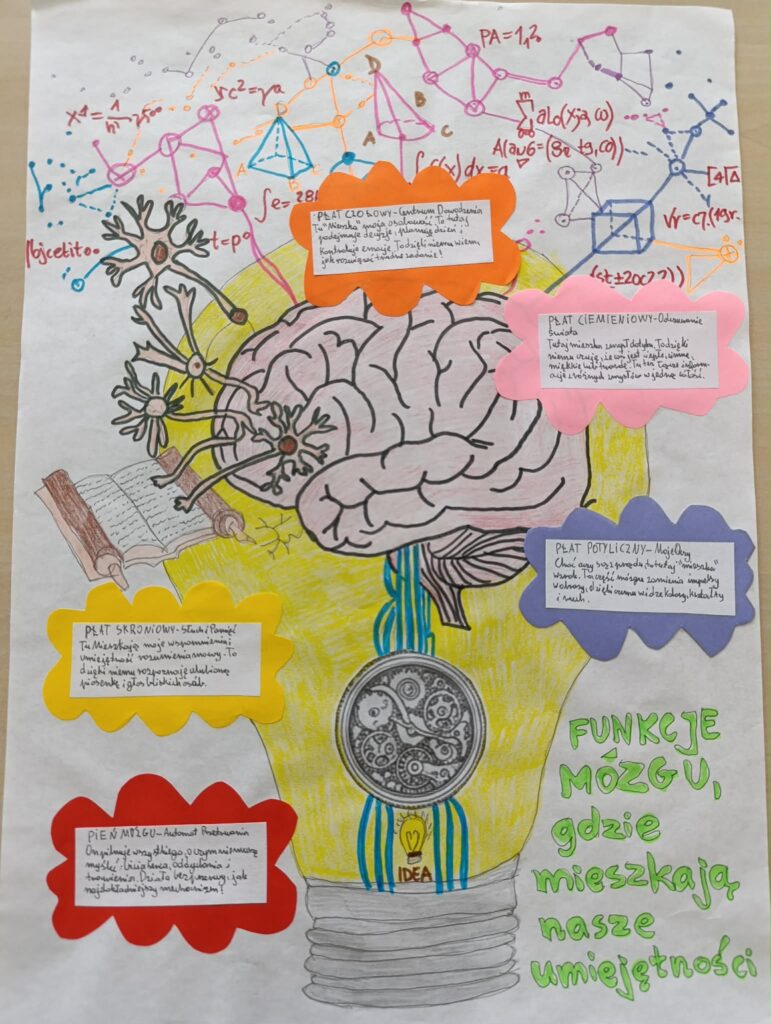 PA=1,2
D
B
A
C
D
A
B
C
∫f(x)dx=a
t=p°
PŁAT CZOŁOWY-Centrum Dowodzenia
Tu "Mieszka" moja osobowość. To tutaj
podejmuję decyzje, planuję dzień i
kontroluję emocje. To dzięki niemu wiem
jak rozwiązać trudne zadanie!
PŁAT CIEMIENIOWY-Odczuwanie
świata
Tutaj mieszka zmysł dotyku. To dzięki
niemu czuję, że coś jest ciepłe, zimne,
miękkie lub twarde. Tu też łączę inform-
acje z różnych zmysłów w jedną całość.
PŁAT POTYLICZNY-Moje Oczy
Choć oczy są z przodu, to tutaj "mieszka"
wzrok. Ta część mózgu zamienia impulsy
w obrazy, dzięki czemu widzę kolory, kształty
i ruch.
PŁAT SKRONIOWY-Słuch i Pamięć
Tu Mieszkają moje wspomnienia i
umiejętność rozumienia mowy. To
dzięki niemu rozpoznaję ulubioną
piosenkę i głos bliskich osób.
PIEŃ MÓZGU-Automat Przetrwania
On pilnuje wszystkiego, o czym nie muszę
myśleć: bicia serca, oddychania i
trawienia. Działa bez przerwy, jak
najdokładniejszy mechanizm!
IDEA
FUNKCJE
MÓZGU,
gdzie
mieszkają
nasze
umiejętności